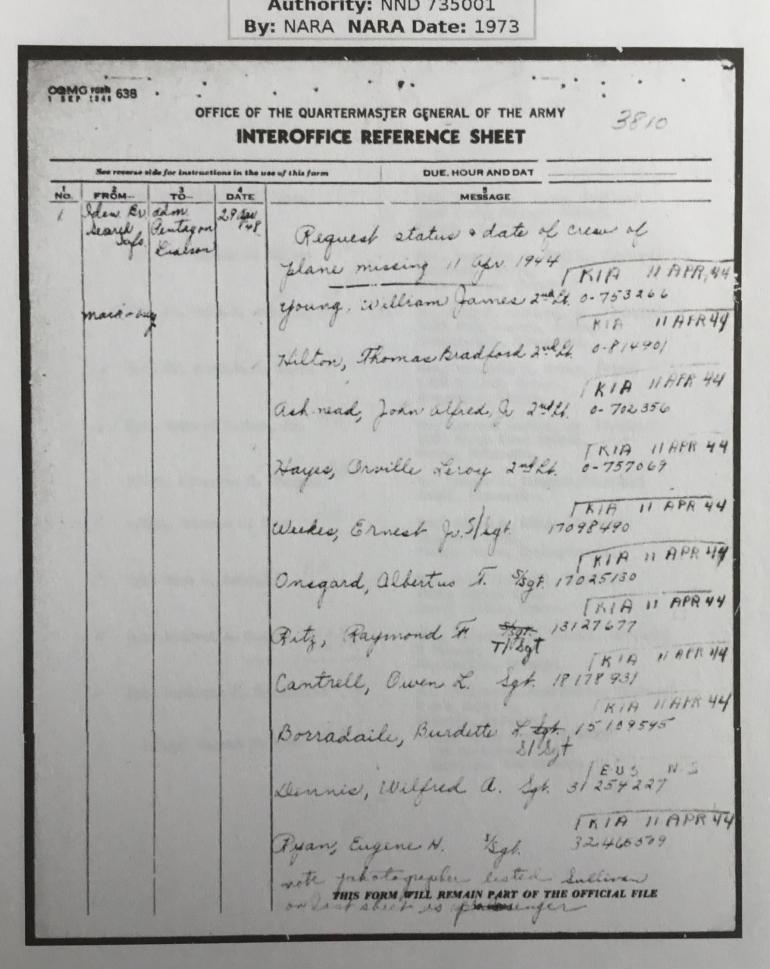 Authority: NND 735001
By: NARA NARA Date: 1973
OQMG FORM 638
1 SEP 1946
OFFICE OF THE QUARTERMASTER GENERAL OF THE ARMY
3810
INTEROFFICE REFERENCE SHEET
See reverse side for instructions in the use of this form
DUE, HOUR AND DAT
1 NO. 2 FROM— 3 TO— 4 DATE 5 MESSAGE
1 Iden Br Adm 29
Search Pentagon 48
Info. Liaison
Request status & date of crew of
plane missing 11 Apr. 1944
KIA 11 APR, 44
Young, William James 2nd Lt. 0-753266
KIA 11 APR 44
Hilton, Thomas Bradford 2nd Lt. 0-814901
KIA 11 APR 44
Ashmead, John Alfred, Jr 2nd Lt. 0-702356
KIA 11 APR 44
Hayes, Orville Leroy 2nd Lt. 0-757069
KIA 11 APR 44
Weekes, Ernest Jr. S/Sgt. 17098490
KIA 11 APR 44
Onsgard, Albertus T. S/Sgt. 17025130
KIA 11 APR 44
Ritz, Raymond F S/Sgt. 13127677
T/Sgt
KIA 11 APR 44
Cantrell, Owen L. Sgt. 18178931
KIA 11 APR 44
Borradaile, Burdette L. Sgt. 15109595
S/Sgt
EUS
Dennis, Wilfred A. Sgt. 31254227
KIA 11 APR 44
Ryan, Eugene H. S/Sgt. 32465509
note photographer listed Sullivan
THIS FORM WILL REMAIN PART OF THE OFFICIAL FILE
on last sheet is passenger